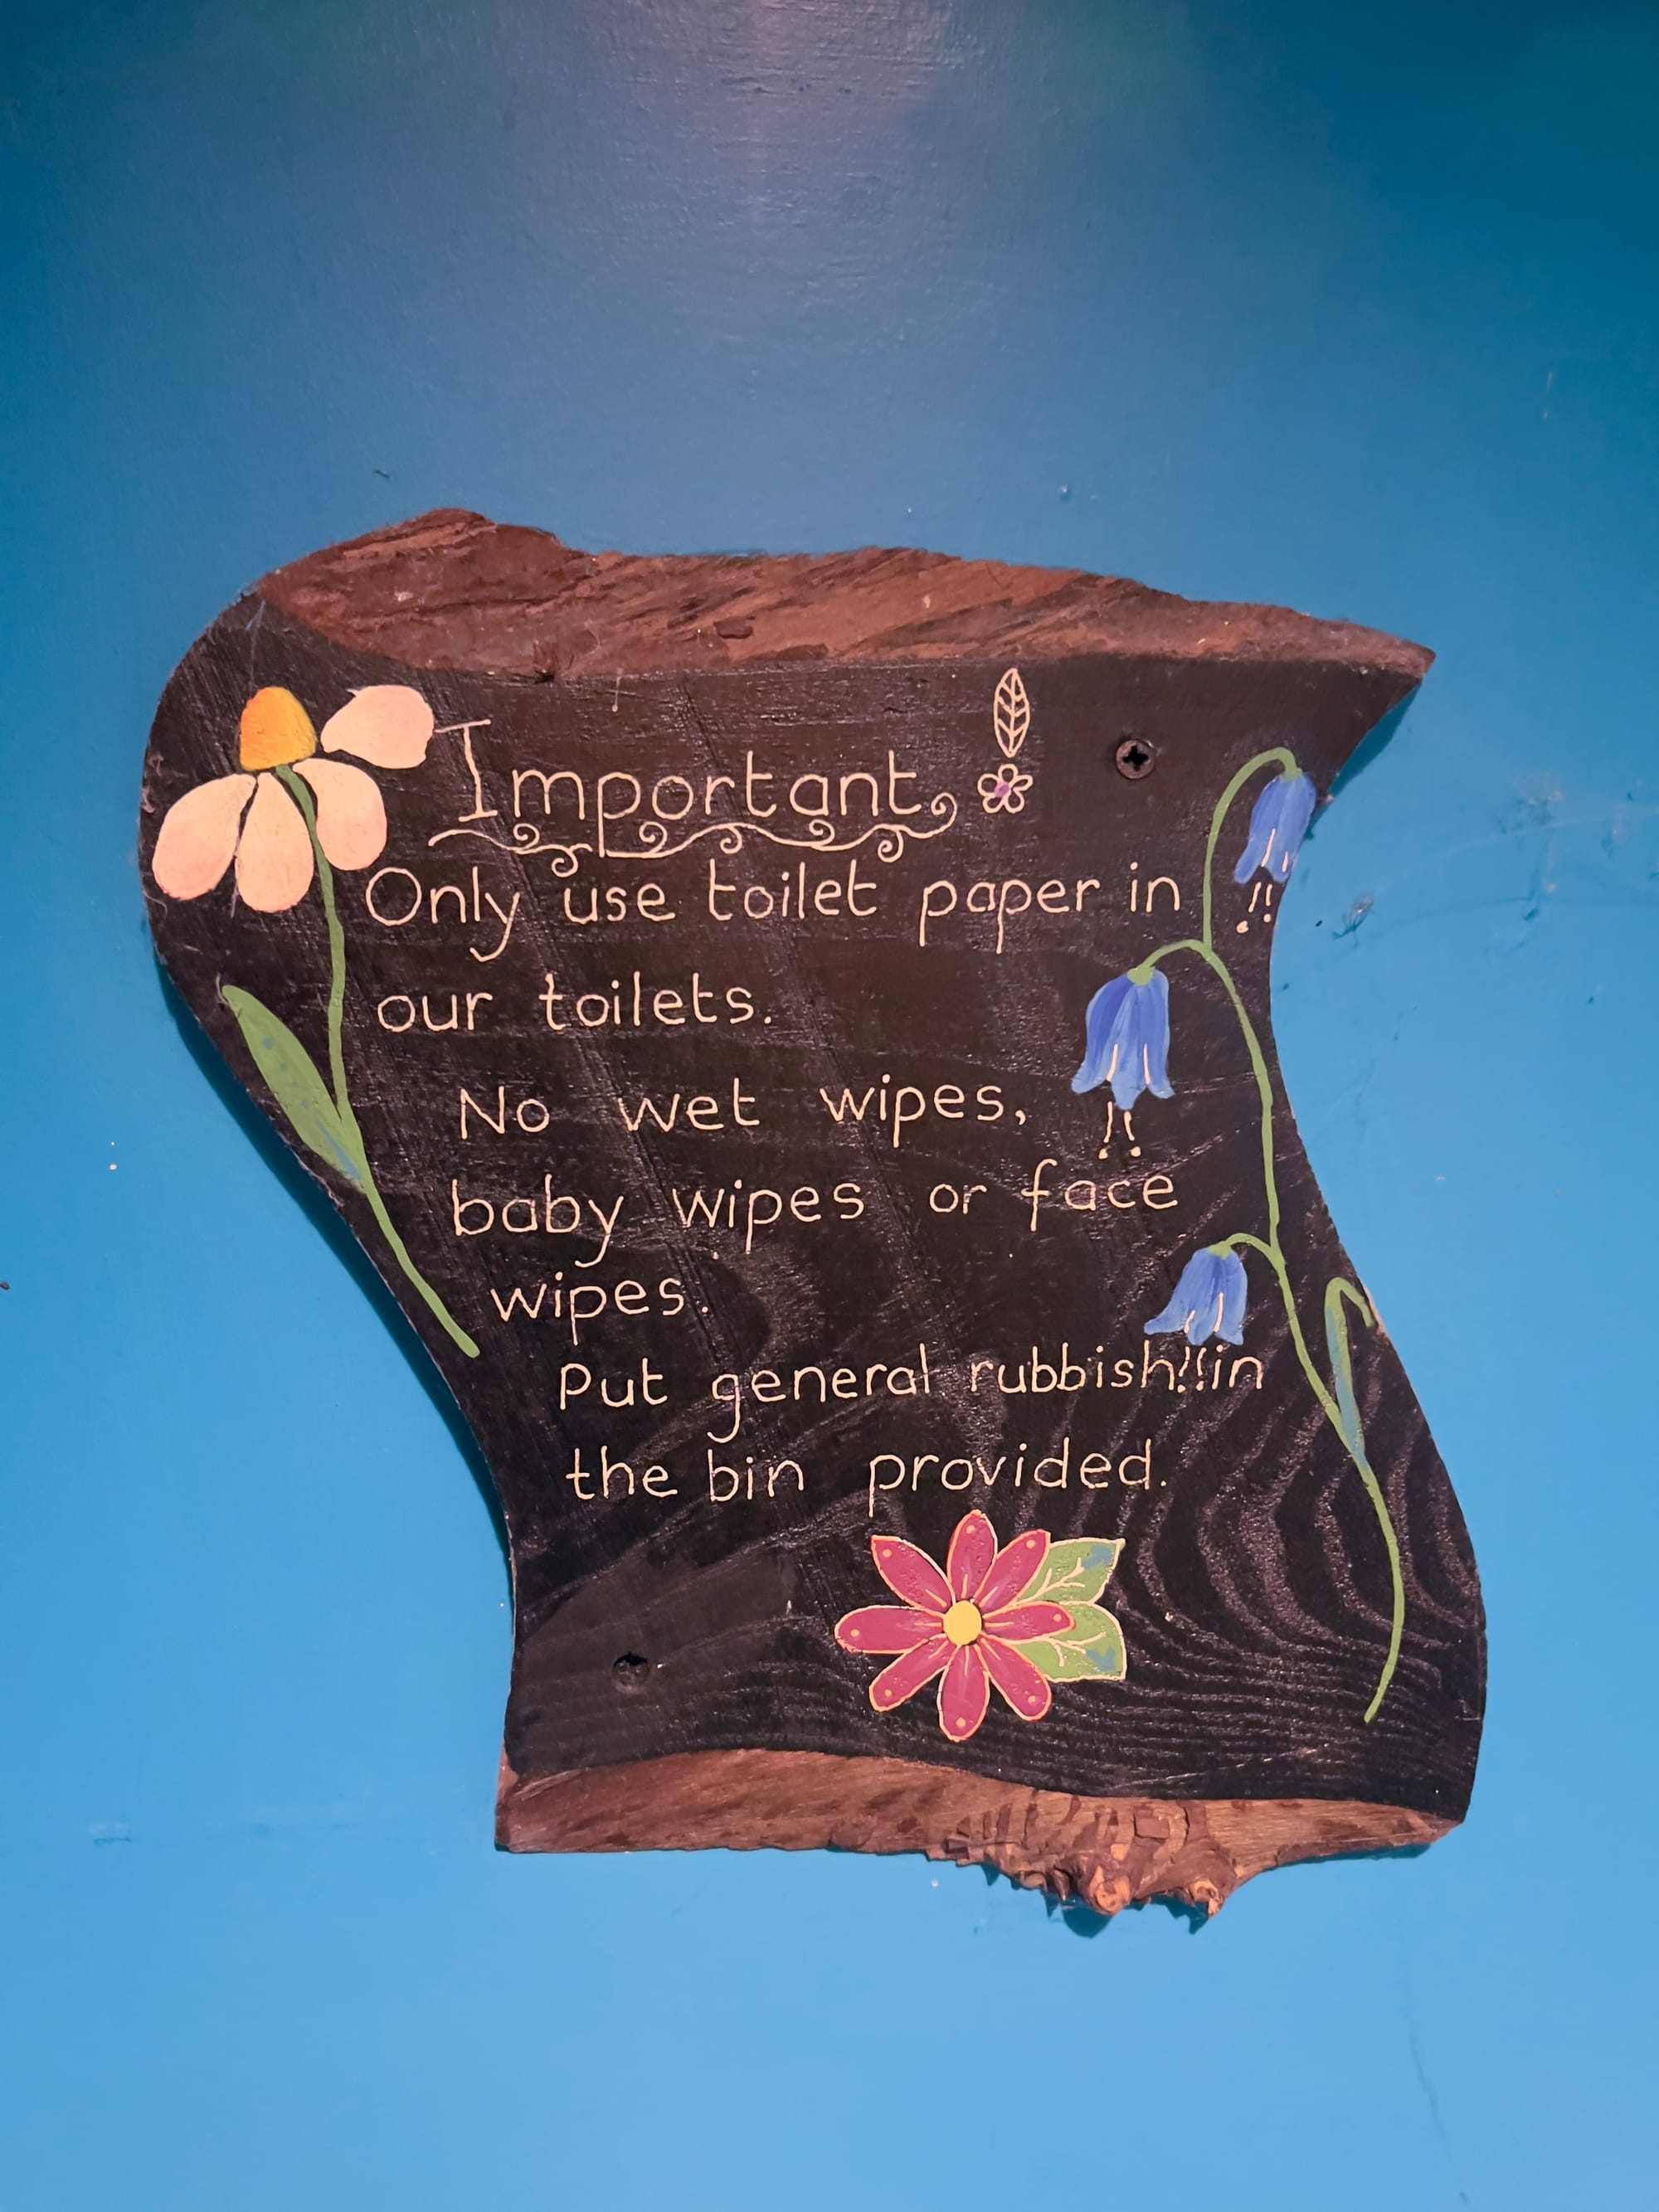 Important!
Only use toilet paper in
our toilets.
No wet wipes,
baby wipes or face
wipes.
Put general rubbish in
the bin provided.